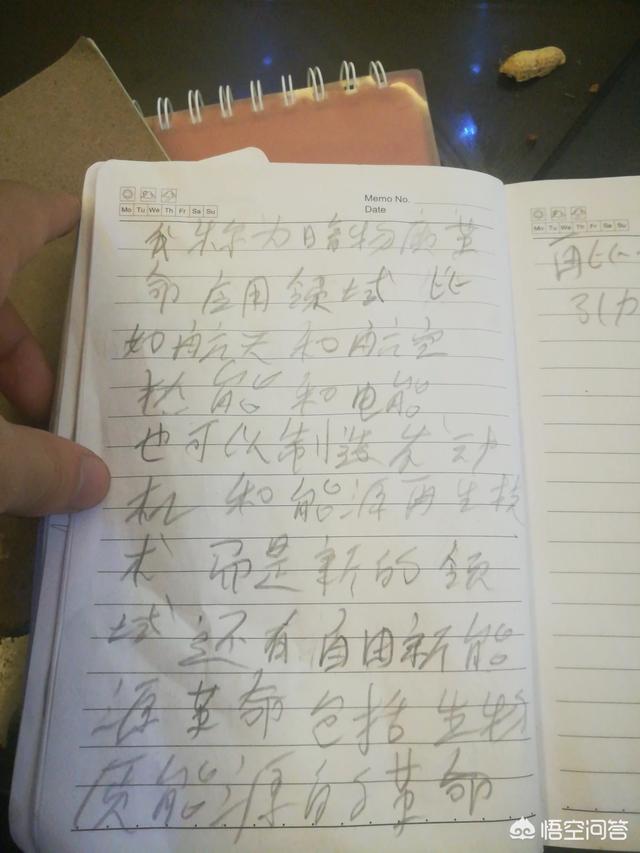 Memo No.
Date
Mo Tu We Th Fr Sa Su
我称为暗物质革
命应用领域 比
如航天和航空
热能和电能
也可以制造发动
机和能源再生技
术 而是新的领
域 还有自由新能
源革命包括生物
质能源的革命
Mo Tu We Th Fr Sa Su
再比
引力
悟空问答